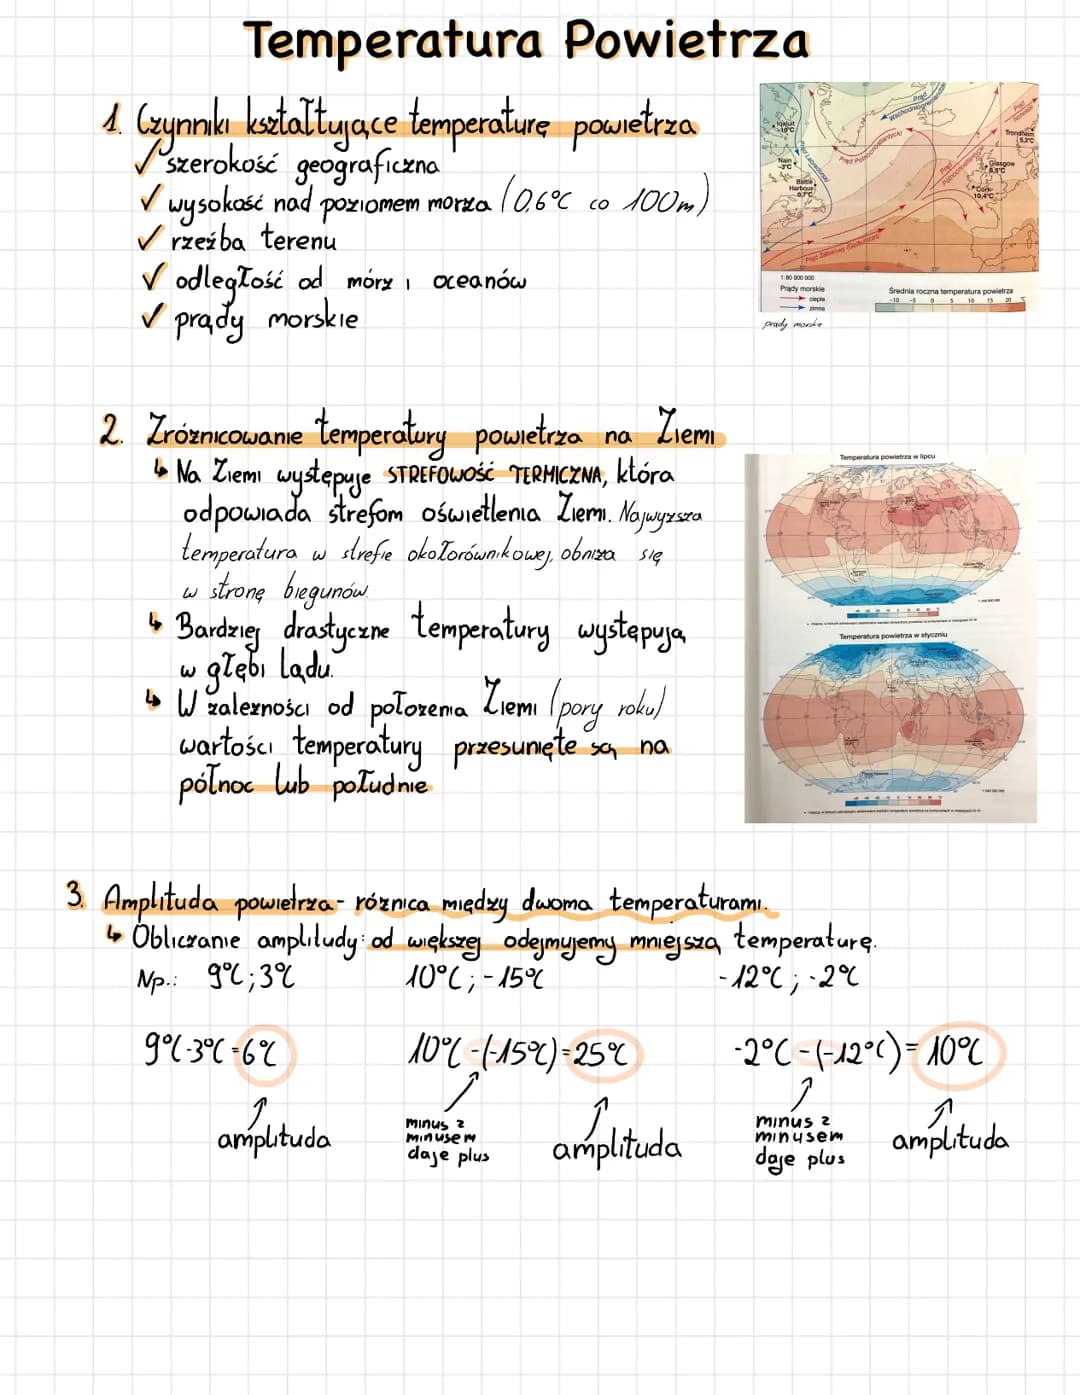 Temperatura Powietrza
1. Czynniki kształtujące temperaturę powietrza
✓ szerokość geograficzna
✓ wysokość nad poziomem morza (0,6°C co 100m)
✓ rzeźba terenu
✓ odległość od mórz i oceanów
✓ prądy morskie
Iqaluit
-10°C
Nain
-3°C
Battle
Harbour
0,7°C
Prąd Labradorski
Prąd Północnoatlantycki
Prąd Zatokowy (Golfsztrom)
Trondheim
5,2°C
Glasgow
Cork
10,4°C
1:80 000 000
Prądy morskie
ciepłe
zimne
Średnia roczna temperatura powietrza
-10 -5 0 5 10 15 20 °C
prądy morskie
2. Zróżnicowanie temperatury powietrza na Ziemi
↳ Na Ziemi występuje STREFOWOŚĆ TERMICZNA, która
odpowiada strefom oświetlenia Ziemi. Najwyższa
temperatura w strefie okołorównikowej, obniża się
w stronę biegunów.
↳ Bardziej drastyczne temperatury występują
w głębi lądu.
↳ W zależności od położenia Ziemi (pory roku)
wartości temperatury przesunięte są na
północ lub południe
Temperatura powietrza w lipcu
Temperatura powietrza w styczniu
3. Amplituda powietrza- różnica między dwoma temperaturami.
↳ Obliczanie amplitudy: od większej odejmujemy mniejszą temperaturę.
Np.: 9°C;3°C 10°C;-15°C -12°C; -2°C
9°C-3°C=6°C 10°C-(-15°C)=25°C -2°C-(-12°C)=10°C
amplituda
minus z
minusem
daje plus
amplituda
minus z
minusem
daje plus
amplituda